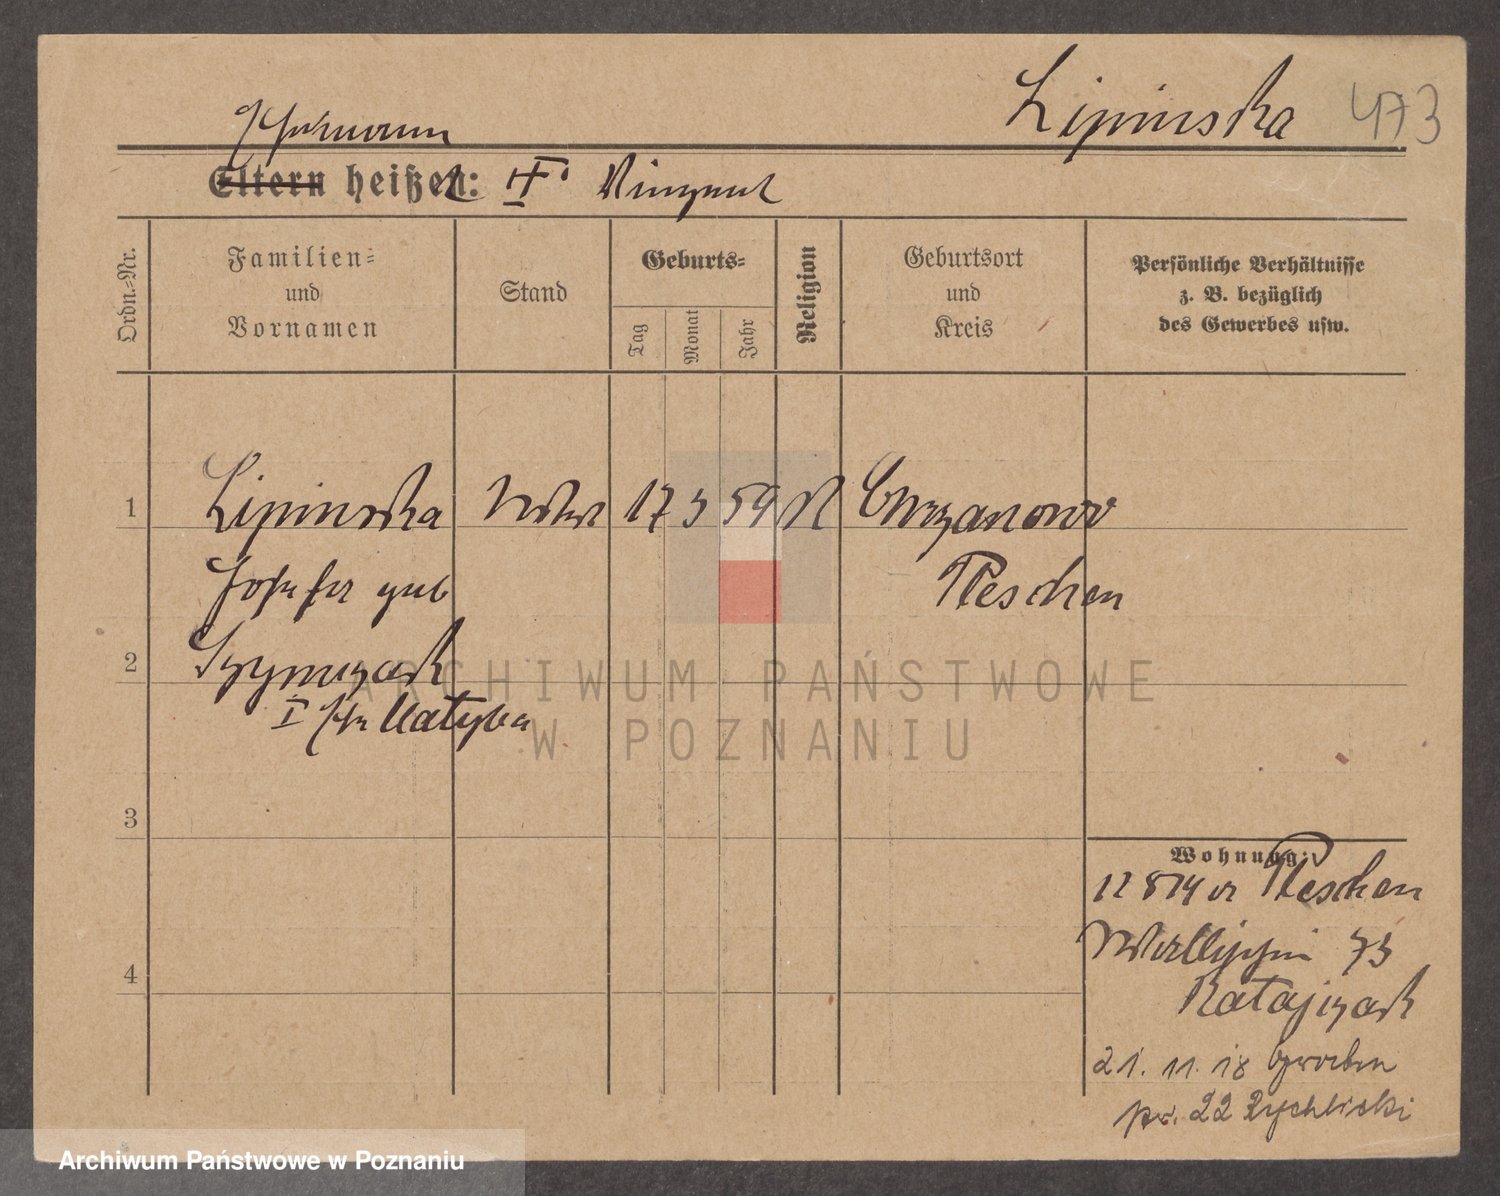 Lipinska 473
Ehemann
Eltern heißen: II. Vinzent
Ordn.-Nr.
Familien-
und
Vornamen
Stand
Geburts-
Tag
Monat
Jahr
Religion
Geburtsort
und
Kreis
Persönliche Verhältnisse
z. B. bezüglich
des Gewerbes usw.
1 Lipinska 17 59 K Chrzanowo
Josefa geb Pleschen
2 Szymczak
I Ehe Matysba
ARCHIWUM PAŃSTWOWE
W POZNANIU
3
Wohnung:
Pleschen
73
4
Ratajczak
21. 11. 18
22 Rychlicki
Archiwum Państwowe w Poznaniu